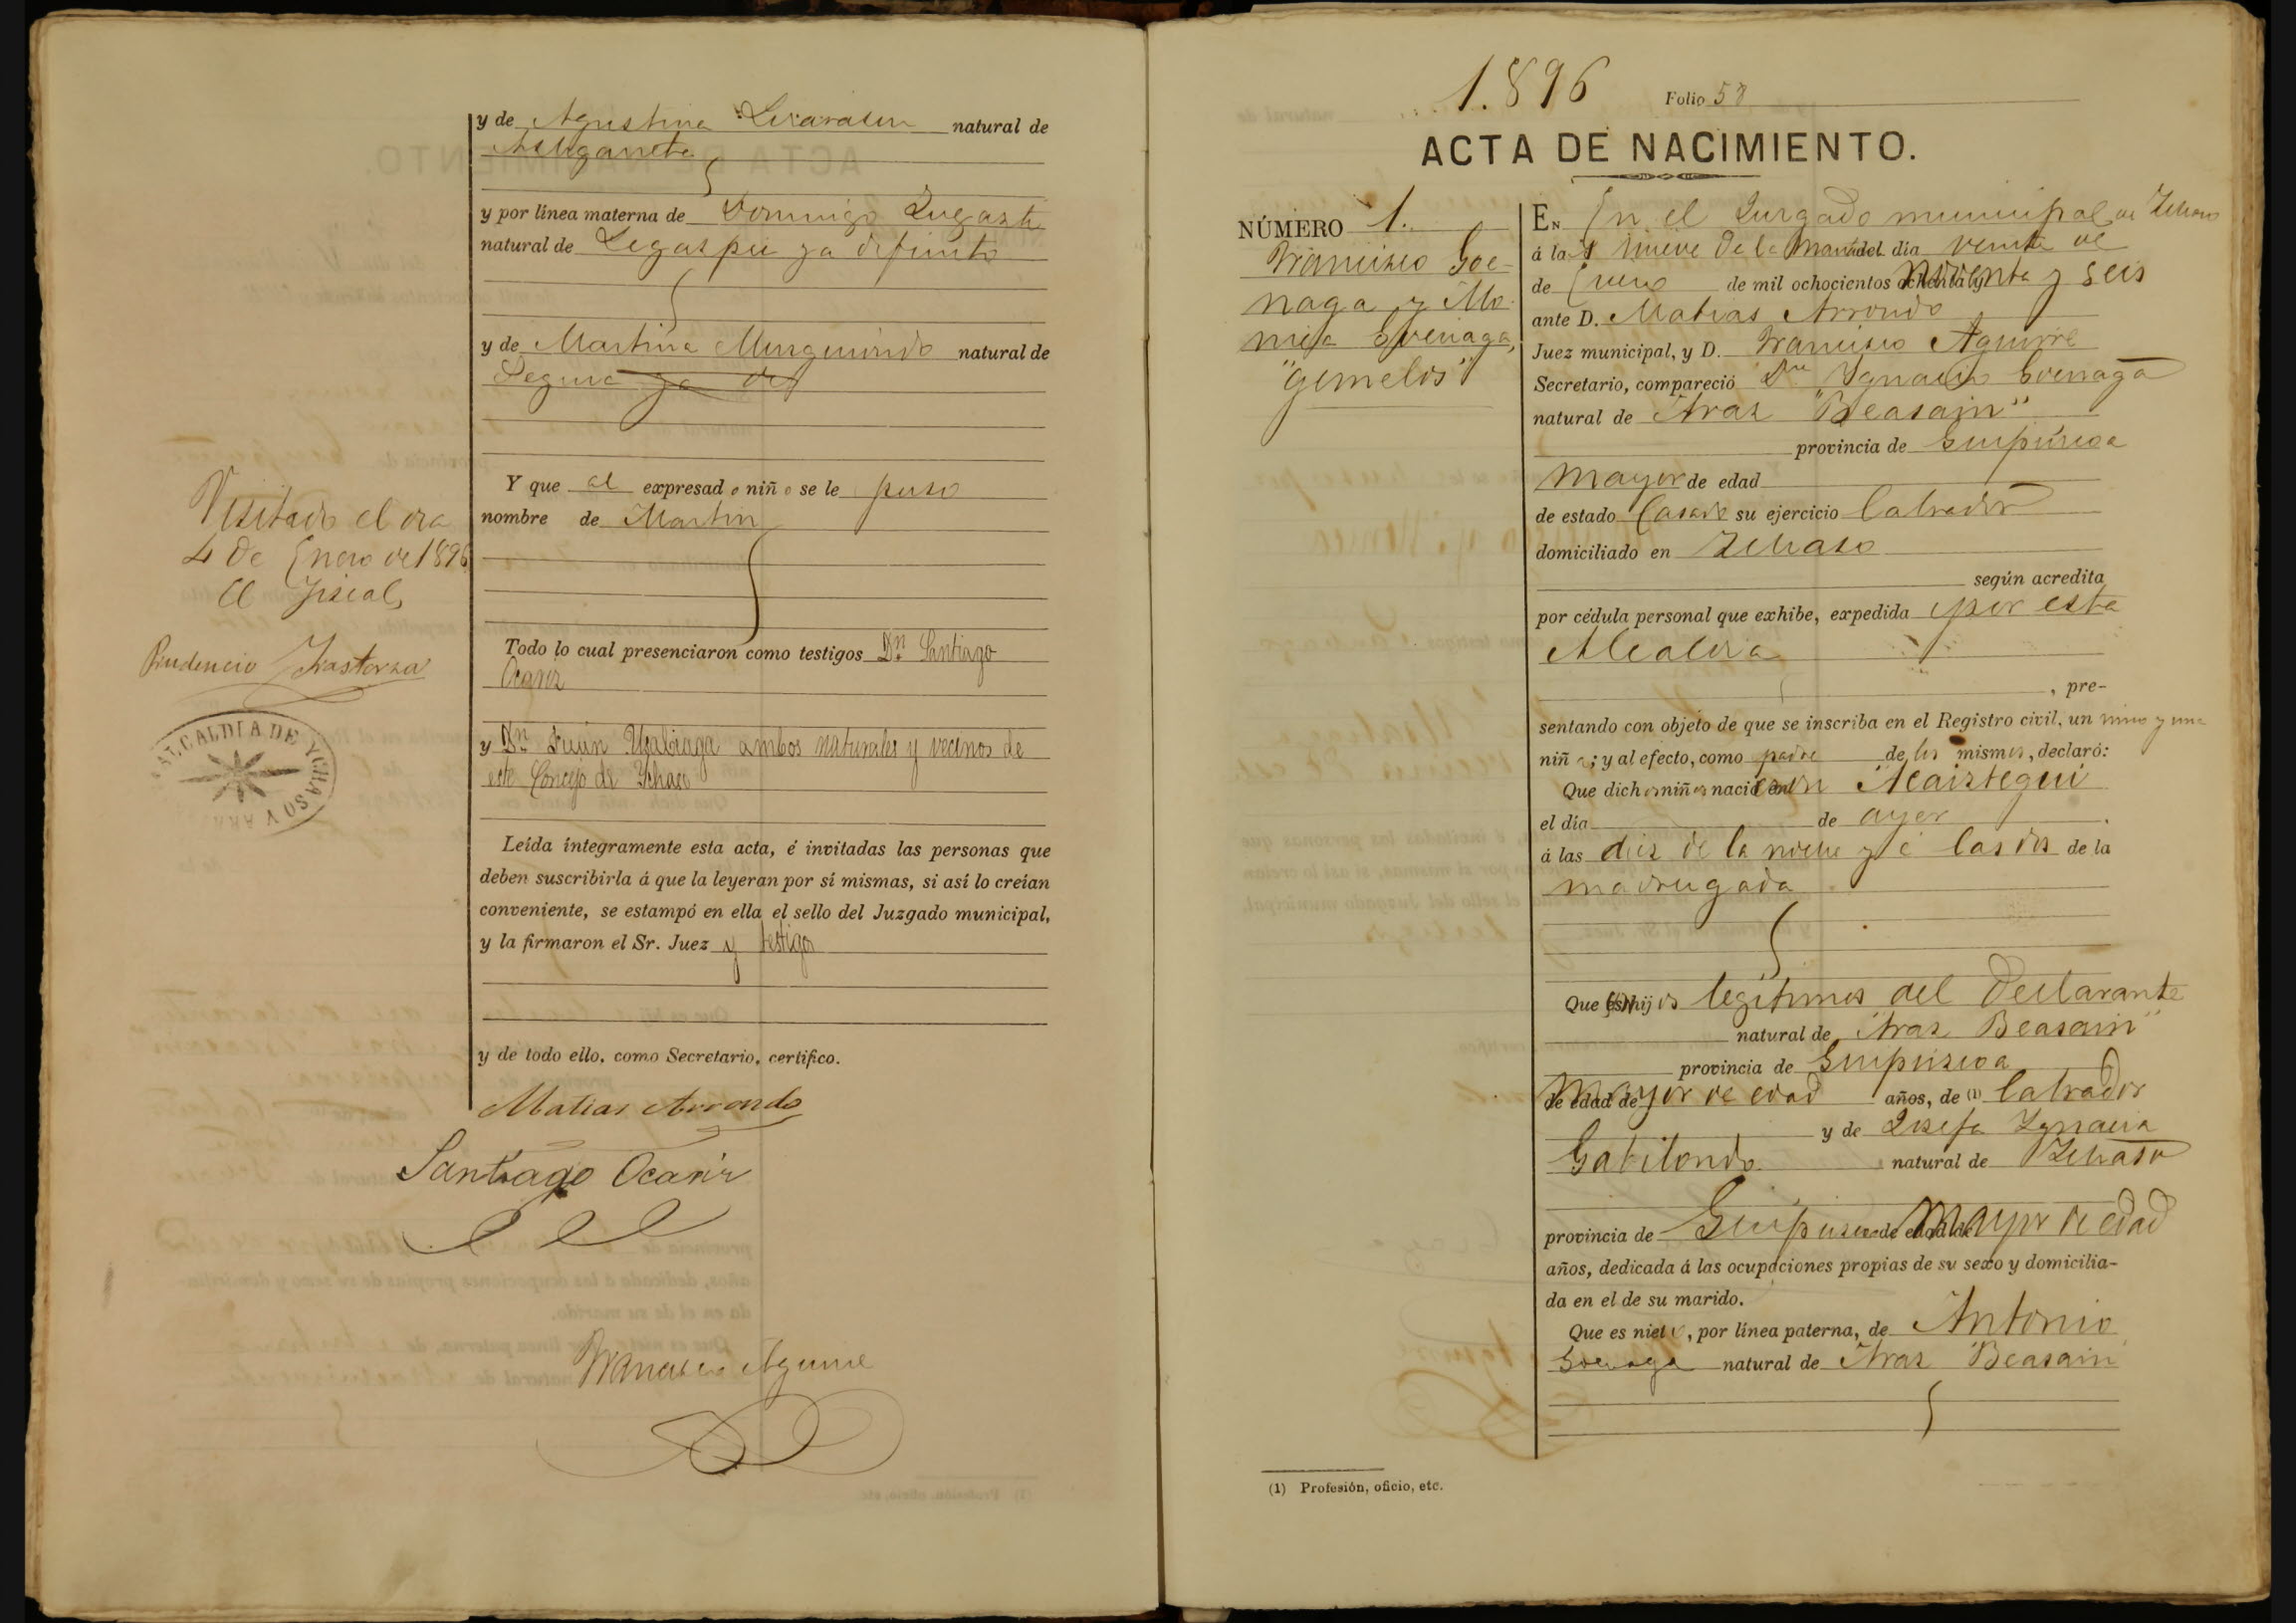 y de Agustina natural de
y por línea materna de Domingo
natural de Legaspia ya difunto
y de Martina Murguiondo natural de
Segura ya dif
Y que al expresado niño se le puso
nombre de Martin
Visitado el dia
4 de Enero de 1896
El Fiscal
Prudencio Irastorza
ALCALDIA DE YCHASO
Todo lo cual presenciaron como testigos Dn. Santiago
Ocariz
y Dn. Juan Usabiaga ambos naturales y vecinos de
este Concejo de Ychaso
Leída íntegramente esta acta, é invitadas las personas que
deben suscribirla á que la leyeran por sí mismas, si así lo creían
conveniente, se estampó en ella el sello del Juzgado municipal,
y la firmaron el Sr. Juez y testigos
y de todo ello, como Secretario, certifico.
Matias Arrondo
Santiago Ocariz
Francisco Aguirre
1.896 Folio 58
ACTA DE NACIMIENTO.
NÚMERO 1.
Francisco Goe-
naga y Mo-
nica Goenaga,
"gemelos"
En En el Juzgado municipal de Ichaso
á las nueve de la mañana del día veinte de
de Enero de mil ochocientos noventa y seis
ante D. Matias Arrondo
Juez municipal, y D. Francisco Aguirre
Secretario, compareció Dn Ygnacio Goenaga
natural de Araz "Beasain"
provincia de Guipúzcoa
mayor de edad
de estado Casado su ejercicio labrador
domiciliado en Ichaso
según acredita
por cédula personal que exhibe, expedida por esta
Alcaldia
, pre-
sentando con objeto de que se inscriba en el Registro civil, un niño y una
niña; y al efecto, como padre de los mismos, declaró:
Que dichos niños nacieron en Alcaiztegui
el día de ayer
á las diez de la noche y á las dos de la
madrugada
Que son hijos legítimos del Declarante
natural de Araz Beasain"
provincia de Guipuzcoa
de edad de mayor de edad años, de (1) labrador
y de Josefa Ygnacia
Gabilondo natural de Ichaso
provincia de Guipuzcoa de edad de mayor de edad
años, dedicada á las ocupaciones propias de su sexo y domicilia-
da en el de su marido.
Que es nieto, por línea paterna, de Antonio
Goenaga natural de Araz Beasain
(1) Profesión, oficio, etc.